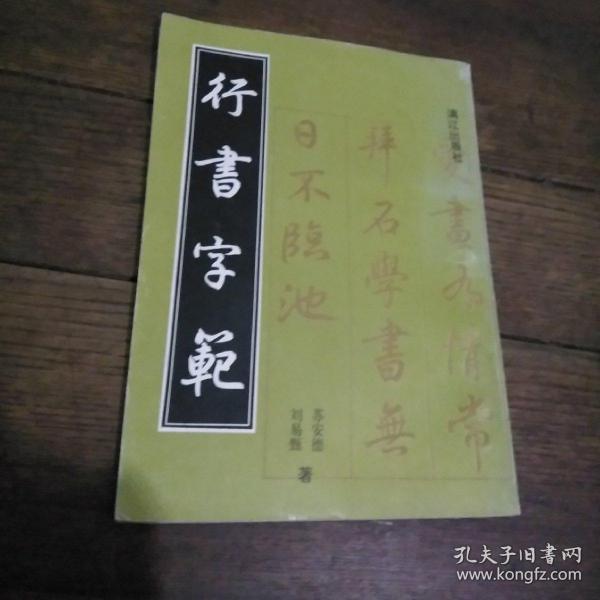 行書字範
漓江出版社
愛畫為情常
拜石學書無
日不臨池
苏安德
刘易甄
著
孔夫子旧书网
www.kongfz.com